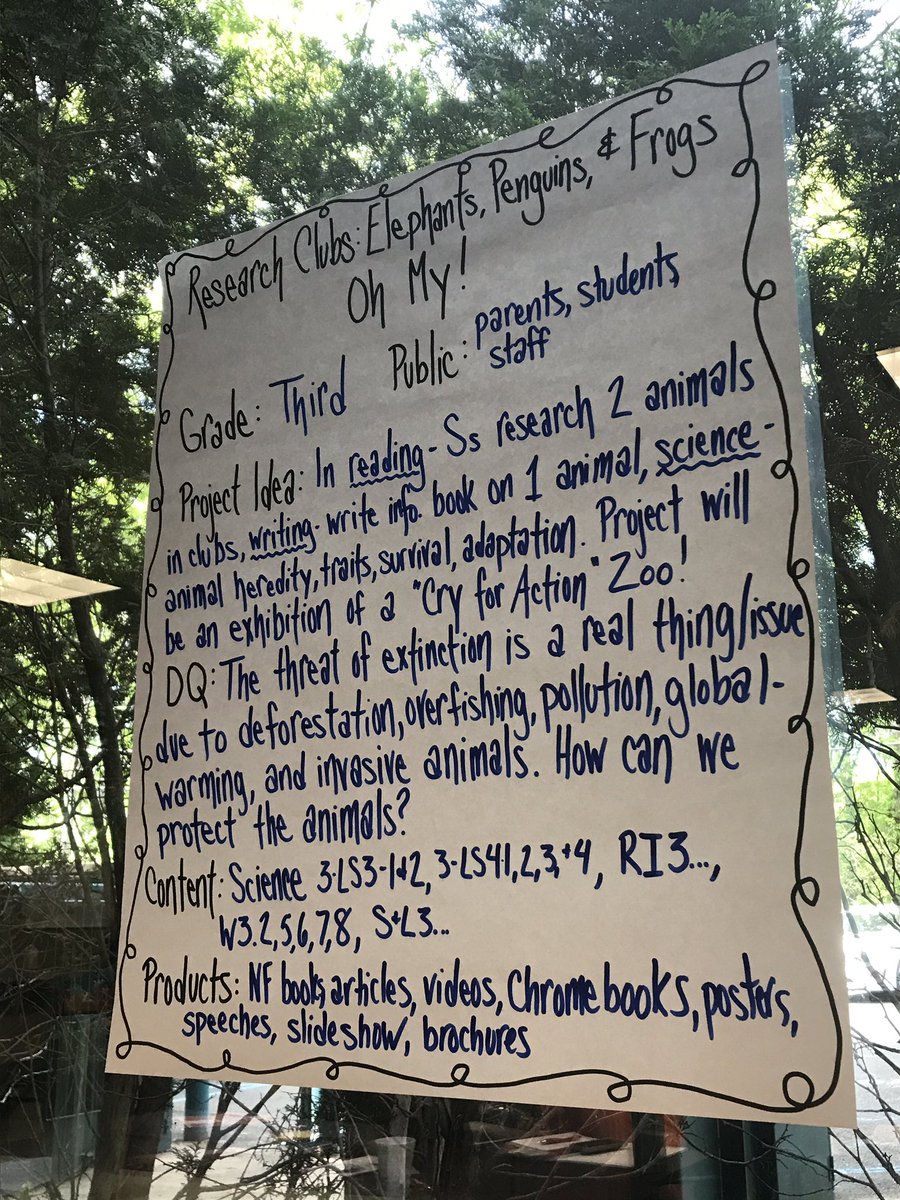 Research Clubs: Elephants, Penguins, & Frogs
Oh My!
Grade: Third Public: parents, students,
staff
Project Idea: In reading - Ss research 2 animals
in clubs, writing - write info. book on 1 animal, science -
animal heredity, traits, survival, adaptation. Project will
be an exhibition of a "Cry for Action" Zoo!
DQ: The threat of extinction is a real thing/issue
due to deforestation, overfishing, pollution, global-
warming, and invasive animals. How can we
protect the animals?
Content: Science 3-LS3-1+2, 3-LS4-1,2,3,+4, RI3...,
W3.2,5,6,7,8, S+L3...
Products: NF books, articles, videos, Chromebooks, posters,
speeches, slideshow, brochures